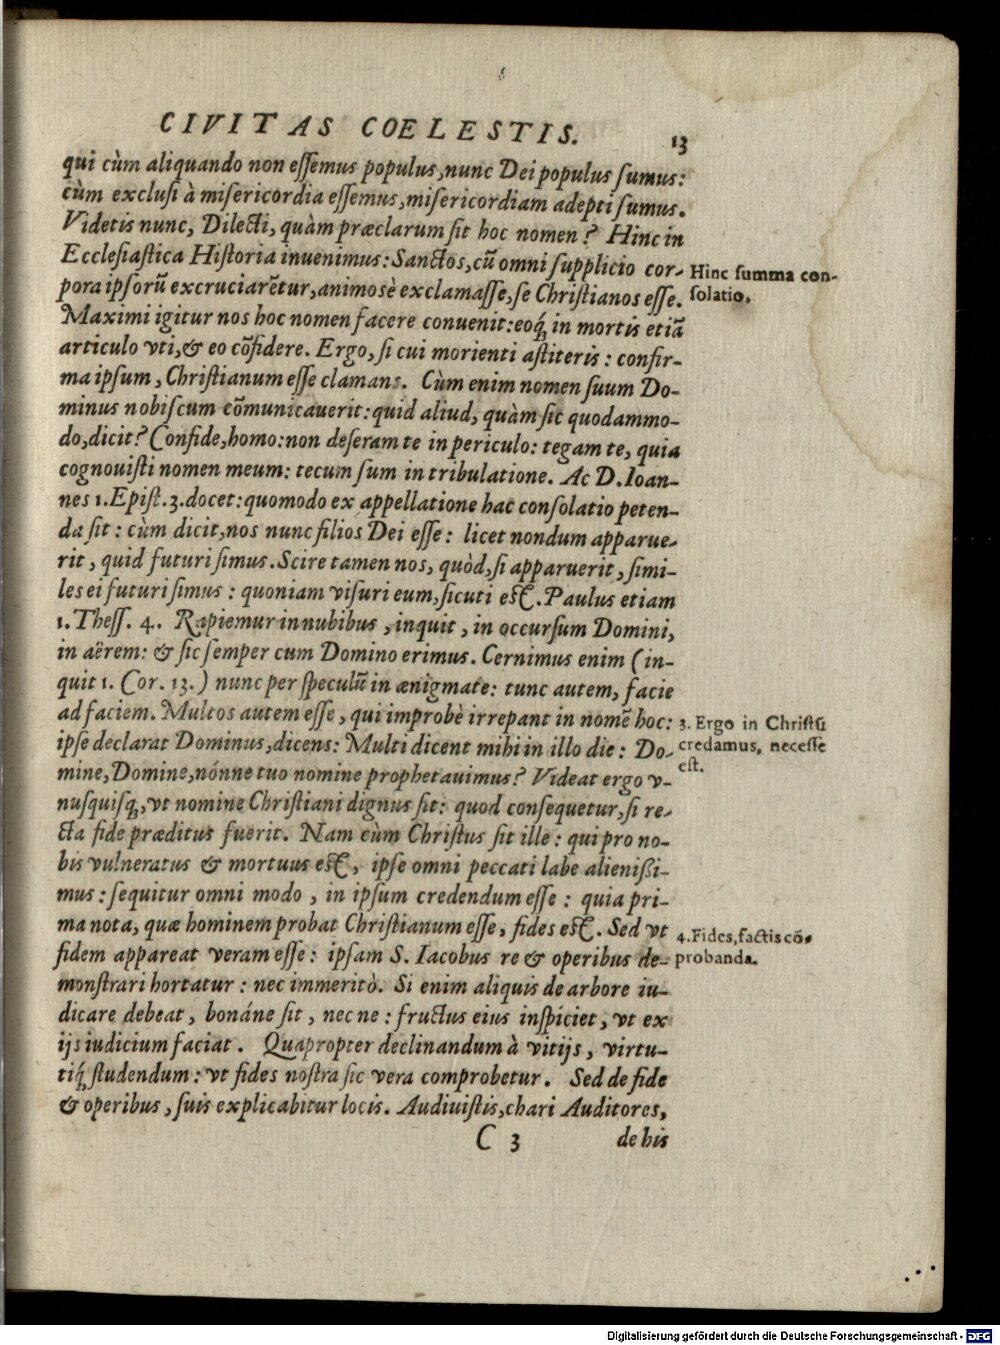 CIVITAS COELESTIS.
13
qui cùm aliquando non eſſemus populus, nunc Dei populus ſumus:
cùm excluſi à miſericordia eſſemus, miſericordiam adepti ſumus.
Videtis nunc, Dilecti, quàm præclarum ſit hoc nomen? Hinc in
Eccleſiaſtica Hiſtoria inuenimus: Sanctos, cū omni ſupplicio cor-
pora ipſorū excruciarētur, animosè exclamaſſe, ſe Christianos eſſe.
Hinc ſumma con-
ſolatio.
Maximi igitur nos hoc nomen facere conuenit: eoq́ in mortis etiā
articulo vti, & eo cōfidere. Ergo, ſi cui morienti aſtiteris: confir-
ma ipſum, Chriſtianum eſſe clamans. Cùm enim nomen ſuum Do-
minus nobiſcum cōmunicauerit: quid aliud, quàm ſic quodammo-
do, dicit? Confide, homo: non deſeram te in periculo: tegam te, quia
cognouiſti nomen meum: tecum ſum in tribulatione. Ac D. Ioan-
nes 1. Epiſt. 3. docet: quomodo ex appellatione hac conſolatio peten-
da ſit: cùm dicit, nos nunc filios Dei eſſe: licet nondum apparue-
rit, quid futuri ſimus. Scire tamen nos, quòd, ſi apparuerit, ſimi-
les ei futuri ſimus: quoniam viſuri eum, ſicuti eſt. Paulus etiam
1. Theſſ. 4. Rapiemur in nubibus, inquit, in occurſum Domini,
in aërem: & ſic ſemper cum Domino erimus. Cernimus enim (in-
quit 1. Cor. 13.) nunc per ſpeculū in ænigmate: tunc autem, facie
ad faciem. Multos autem eſſe, qui improbè irrepant in nomē hoc:
ipſe declarat Dominus, dicens: Multi dicent mihi in illo die: Do-
3. Ergo in Chriſtū
credamus, neceſſe
eſt.
mine, Domine, nónne tuo nomine prophetauimus? Videat ergo v-
nuſquiſq́, vt nomine Chriſtiani dignus ſit: quod conſequetur, ſi re-
cta fide præditus fuerit. Nam cùm Chriſtus ſit ille: qui pro no-
bis vulneratus & mortuus eſt, ipſe omni peccati labe alienißi-
mus: ſequitur omni modo, in ipſum credendum eſſe: quia pri-
ma nota, quæ hominem probat Chriſtianum eſſe, fides eſt. Sed vt
fidem appareat veram eſſe: ipſam S. Iacobus re & operibus de-
4. Fides, factis cō-
probanda.
monſtrari hortatur: nec immeritò. Si enim aliquis de arbore iu-
dicare debeat, bonáne ſit, nec ne: fructus eius inſpiciet, vt ex
ijs iudicium faciat. Quapropter declinandum à vitijs, virtu-
tiq́ ſtudendum: vt fides noſtra ſic vera comprobetur. Sed de fide
& operibus, ſuis explicabitur locis. Audiuiſtis, chari Auditores,
C 3
de his
Digitalisierung gefördert durch die Deutsche Forschungsgemeinschaft - DFG